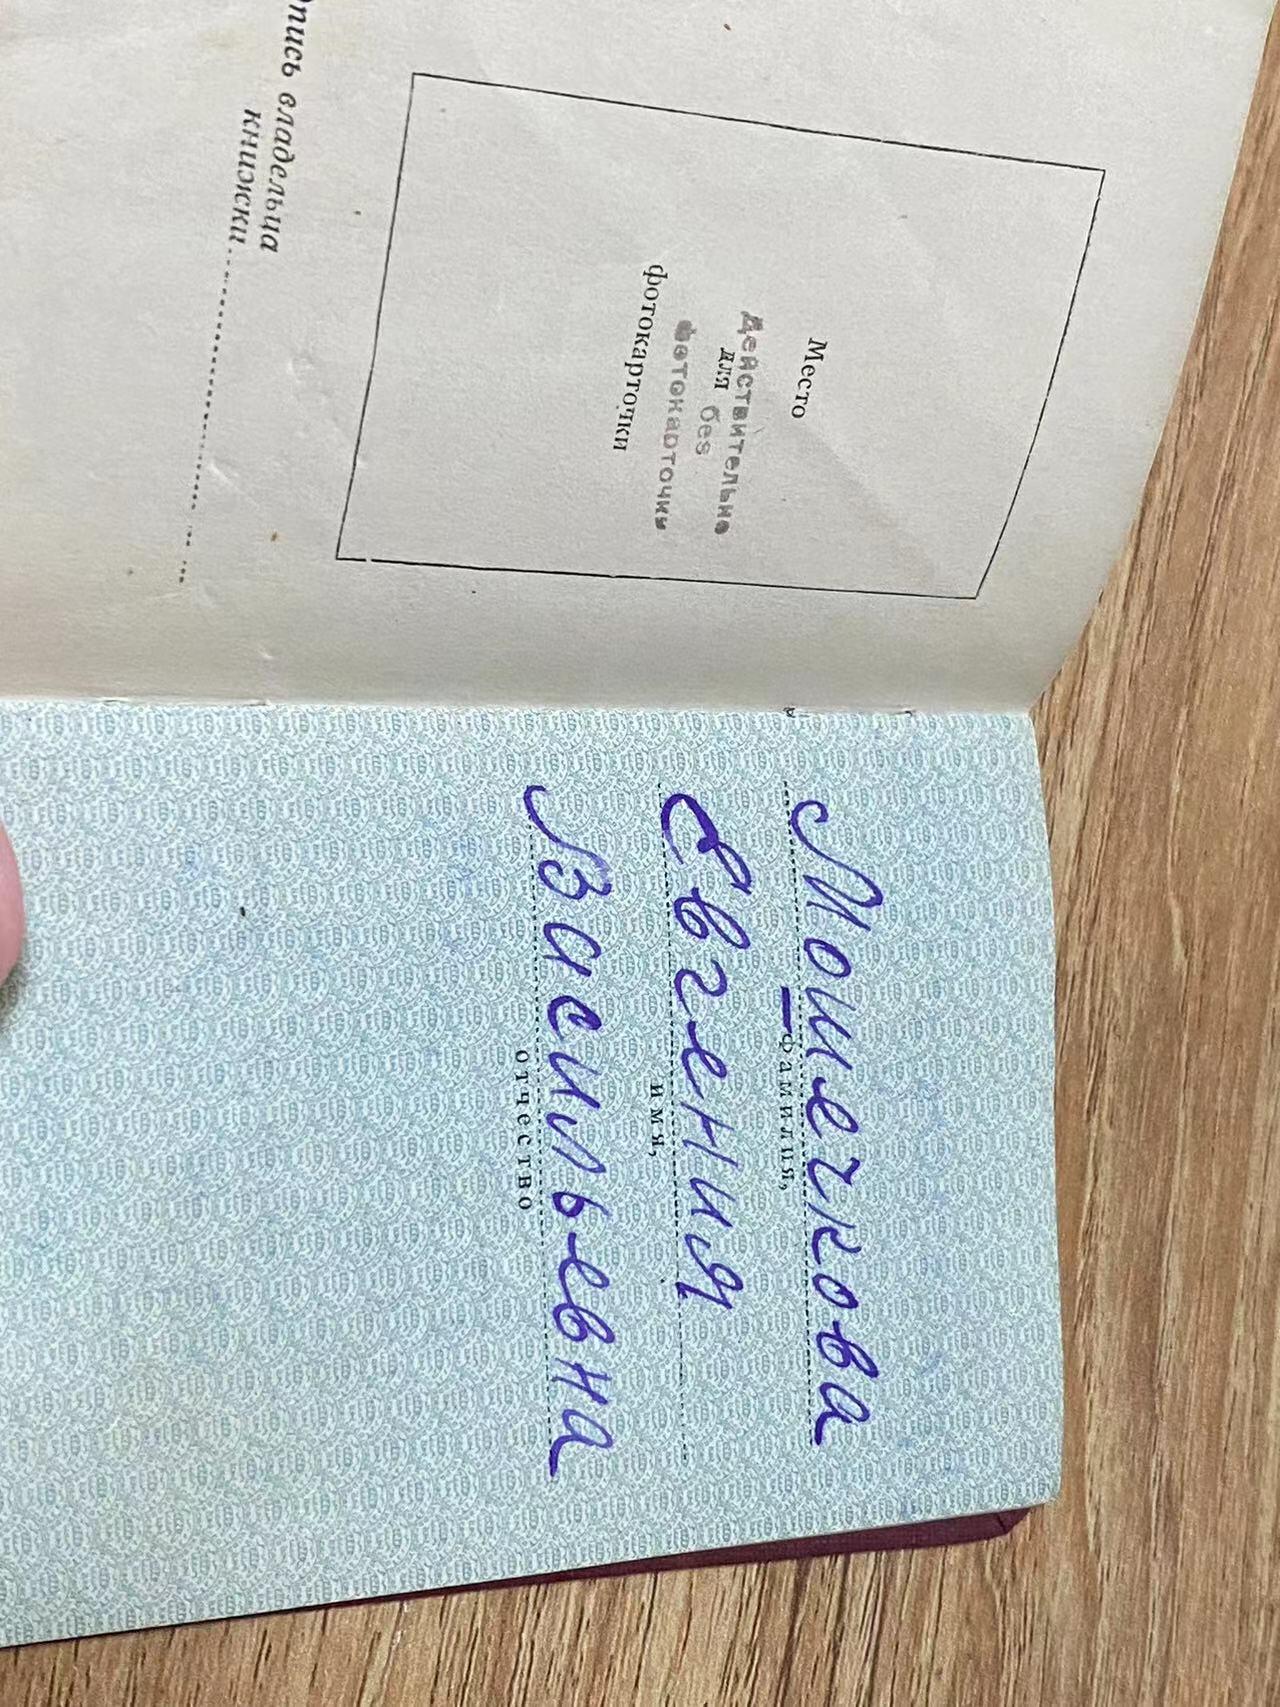 Место
Действительно
для без
фотокарточки
фотокарточки
опись владельца
книжки
Мошечкова
фамилия,
Евгения
имя,
Васильевна
отчество